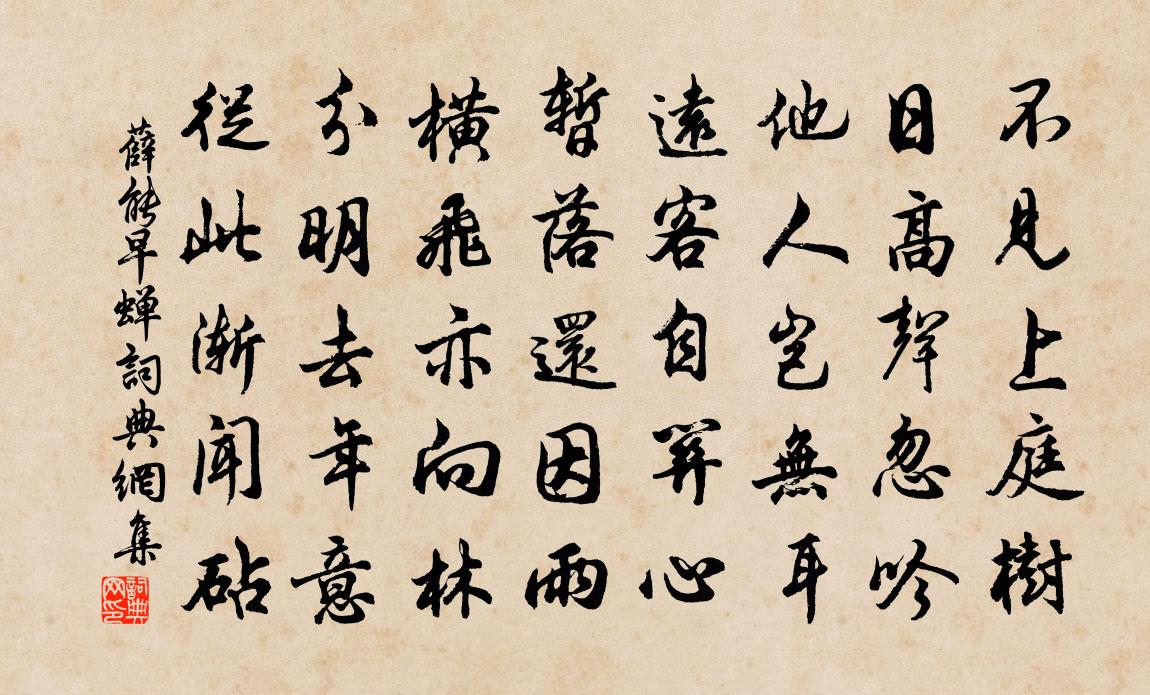 不見上庭樹
日高聲忽吟
他人豈無耳
遠客自關心
暫落還因雨
橫飛亦向林
分明去年意
從此漸聞砧
薛能早蟬詞典網集
詞典